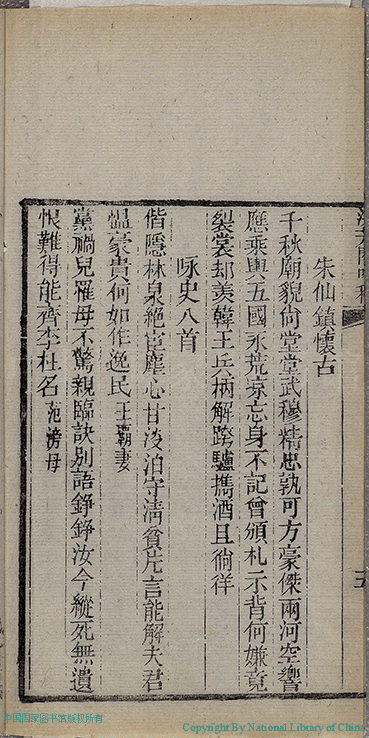 朱仙鎮懷古
千秋廟貌尙堂堂武穆精忠孰可方豪傑兩河空響
應乘輿五國永荒凉忘身不記曾頒札示背何嫌竟
裂裳却羨韓王兵柄解跨驢擕酒且徜徉
咏史八首
偕隱林泉絶俗塵心甘淡泊守清貧片言能解夫君
愠豪貴何如作逸民王霸妻
黨禍兒罹母不驚親臨訣別語錚錚汝今縱死無遺
恨難得能齊李杜名范滂母
五
中国国家图书馆版权所有
Copyright By National Library of China